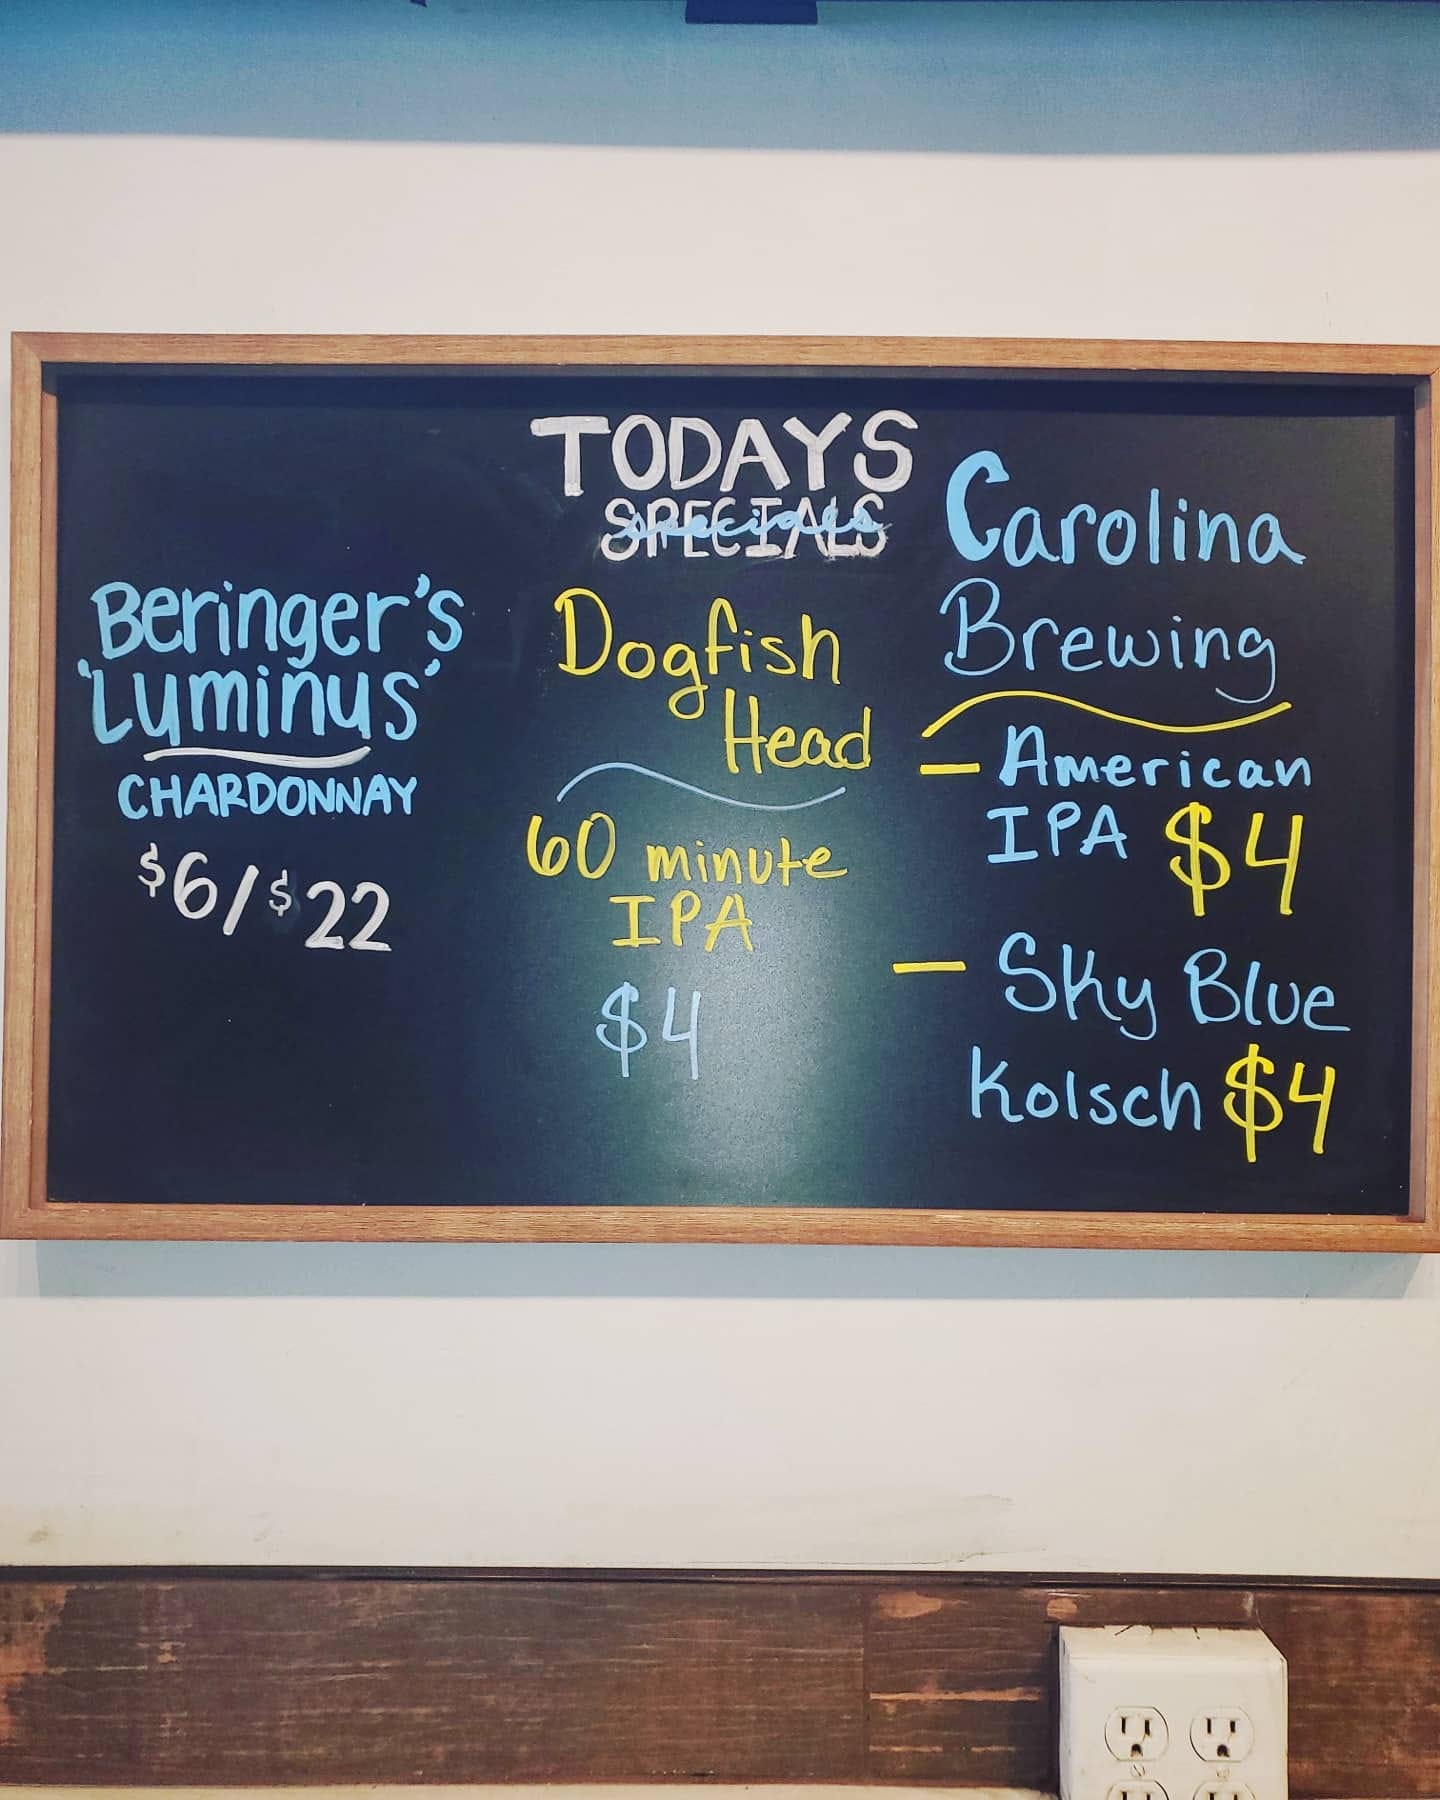 TODAYS
SPECIALS
Beringer's
'Luminus'
CHARDONNAY
$6/$22
Dogfish
Head
60 minute
IPA
$4
Carolina
Brewing
- American
IPA $4
- Sky Blue
Kolsch $4